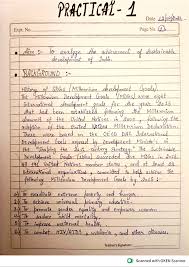 PRACTICAL - 1
Date
Expt. No.
Page No.
Aim :- To analyse the achievement of sustainable
development of India.
BACKGROUND :-
History of SDGs (Millennium development Goals)
The Millennium Development Goals (MDGs) were eight
international development goals for the year 2015
that had been established following the Millennium
Summit of the United Nations in 2000, following the
adoption of the United Nations Millennium Declaration.
These were based on the OECD DAC International
Development Goals
The Sustainable
Development Goals (SDGs) succeeded the MDGs in 2016.
All
United Nations
international
the
following Millennium Development Goals by 2015:
a) To eradicate extreme poverty and hunger
b) To achieve universal primary education
c) To promote gender equality and empower women
d) To reduce child mortality
e) To improve maternal health
f) To combat HIV/AIDS, malaria, and other diseases
Teacher's Signature
Scanned with OKEN Scanner